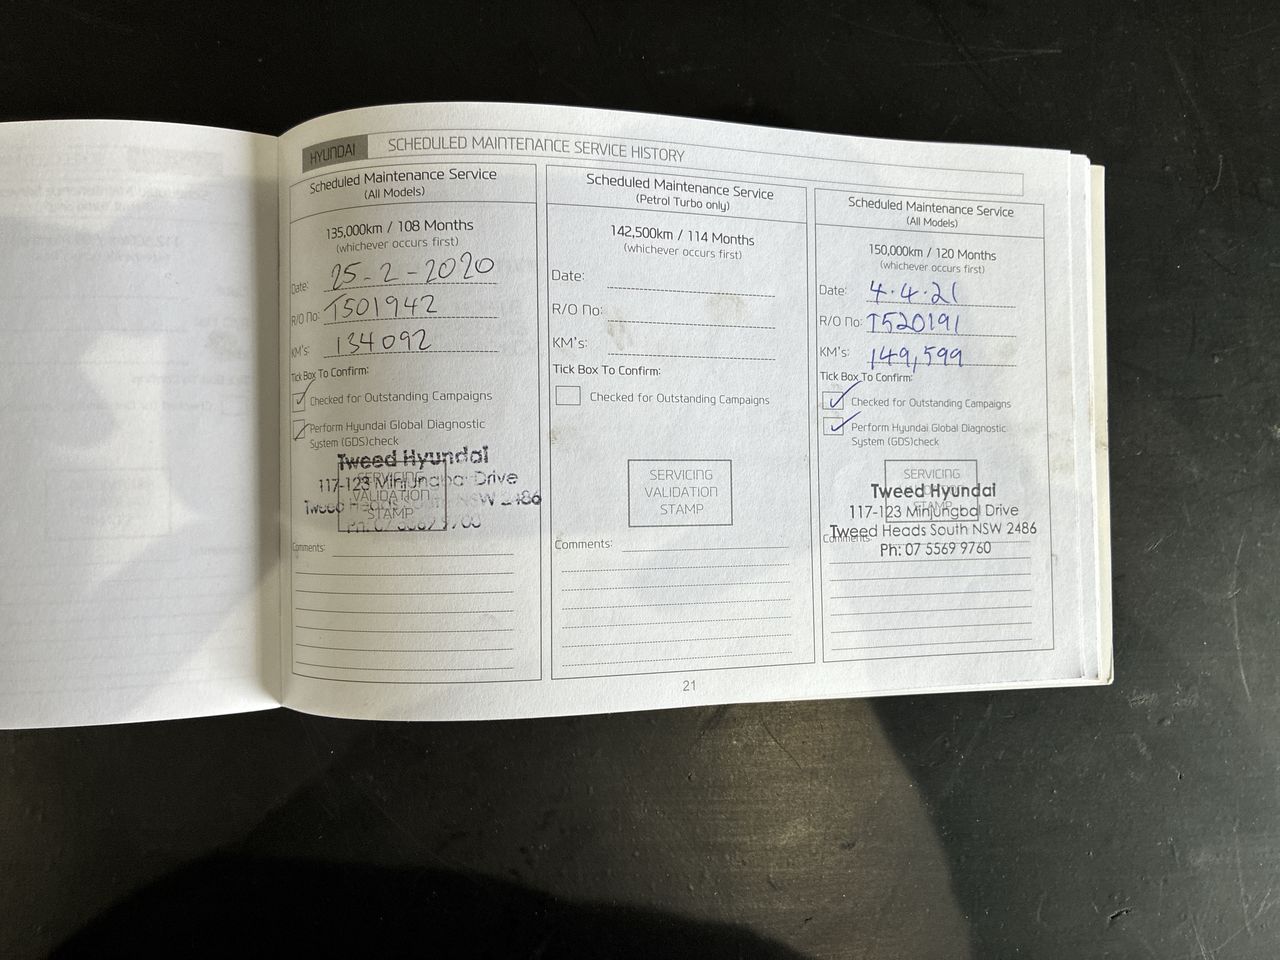 HYUNDAI SCHEDULED MAINTENANCE SERVICE HISTORY
Scheduled Maintenance Service
(All Models)
135,000km / 108 Months
(whichever occurs first)
Date: 25-2-2020
R/O No: T501942
KM's: 134092
Tick Box To Confirm:
Checked for Outstanding Campaigns
Perform Hyundai Global Diagnostic
System (GDS)check
Tweed Hyundai
117-123 Minjungbal Drive
SERVICING
VALIDATION
STAMP
Tweed Heads NSW 2486
Comments:
Scheduled Maintenance Service
(Petrol Turbo only)
142,500km / 114 Months
(whichever occurs first)
Date:
R/O No:
KM's:
Tick Box To Confirm:
Checked for Outstanding Campaigns
SERVICING
VALIDATION
STAMP
Comments:
Scheduled Maintenance Service
(All Models)
150,000km / 120 Months
(whichever occurs first)
Date: 4.4.21
R/O No: T520191
KM's: 149,599
Tick Box To Confirm:
Checked for Outstanding Campaigns
Perform Hyundai Global Diagnostic
System (GDS)check
SERVICING
STAMP
Tweed Hyundai
117-123 Minjungbal Drive
Tweed Heads South NSW 2486
Comments:
Ph: 07 5569 9760
21